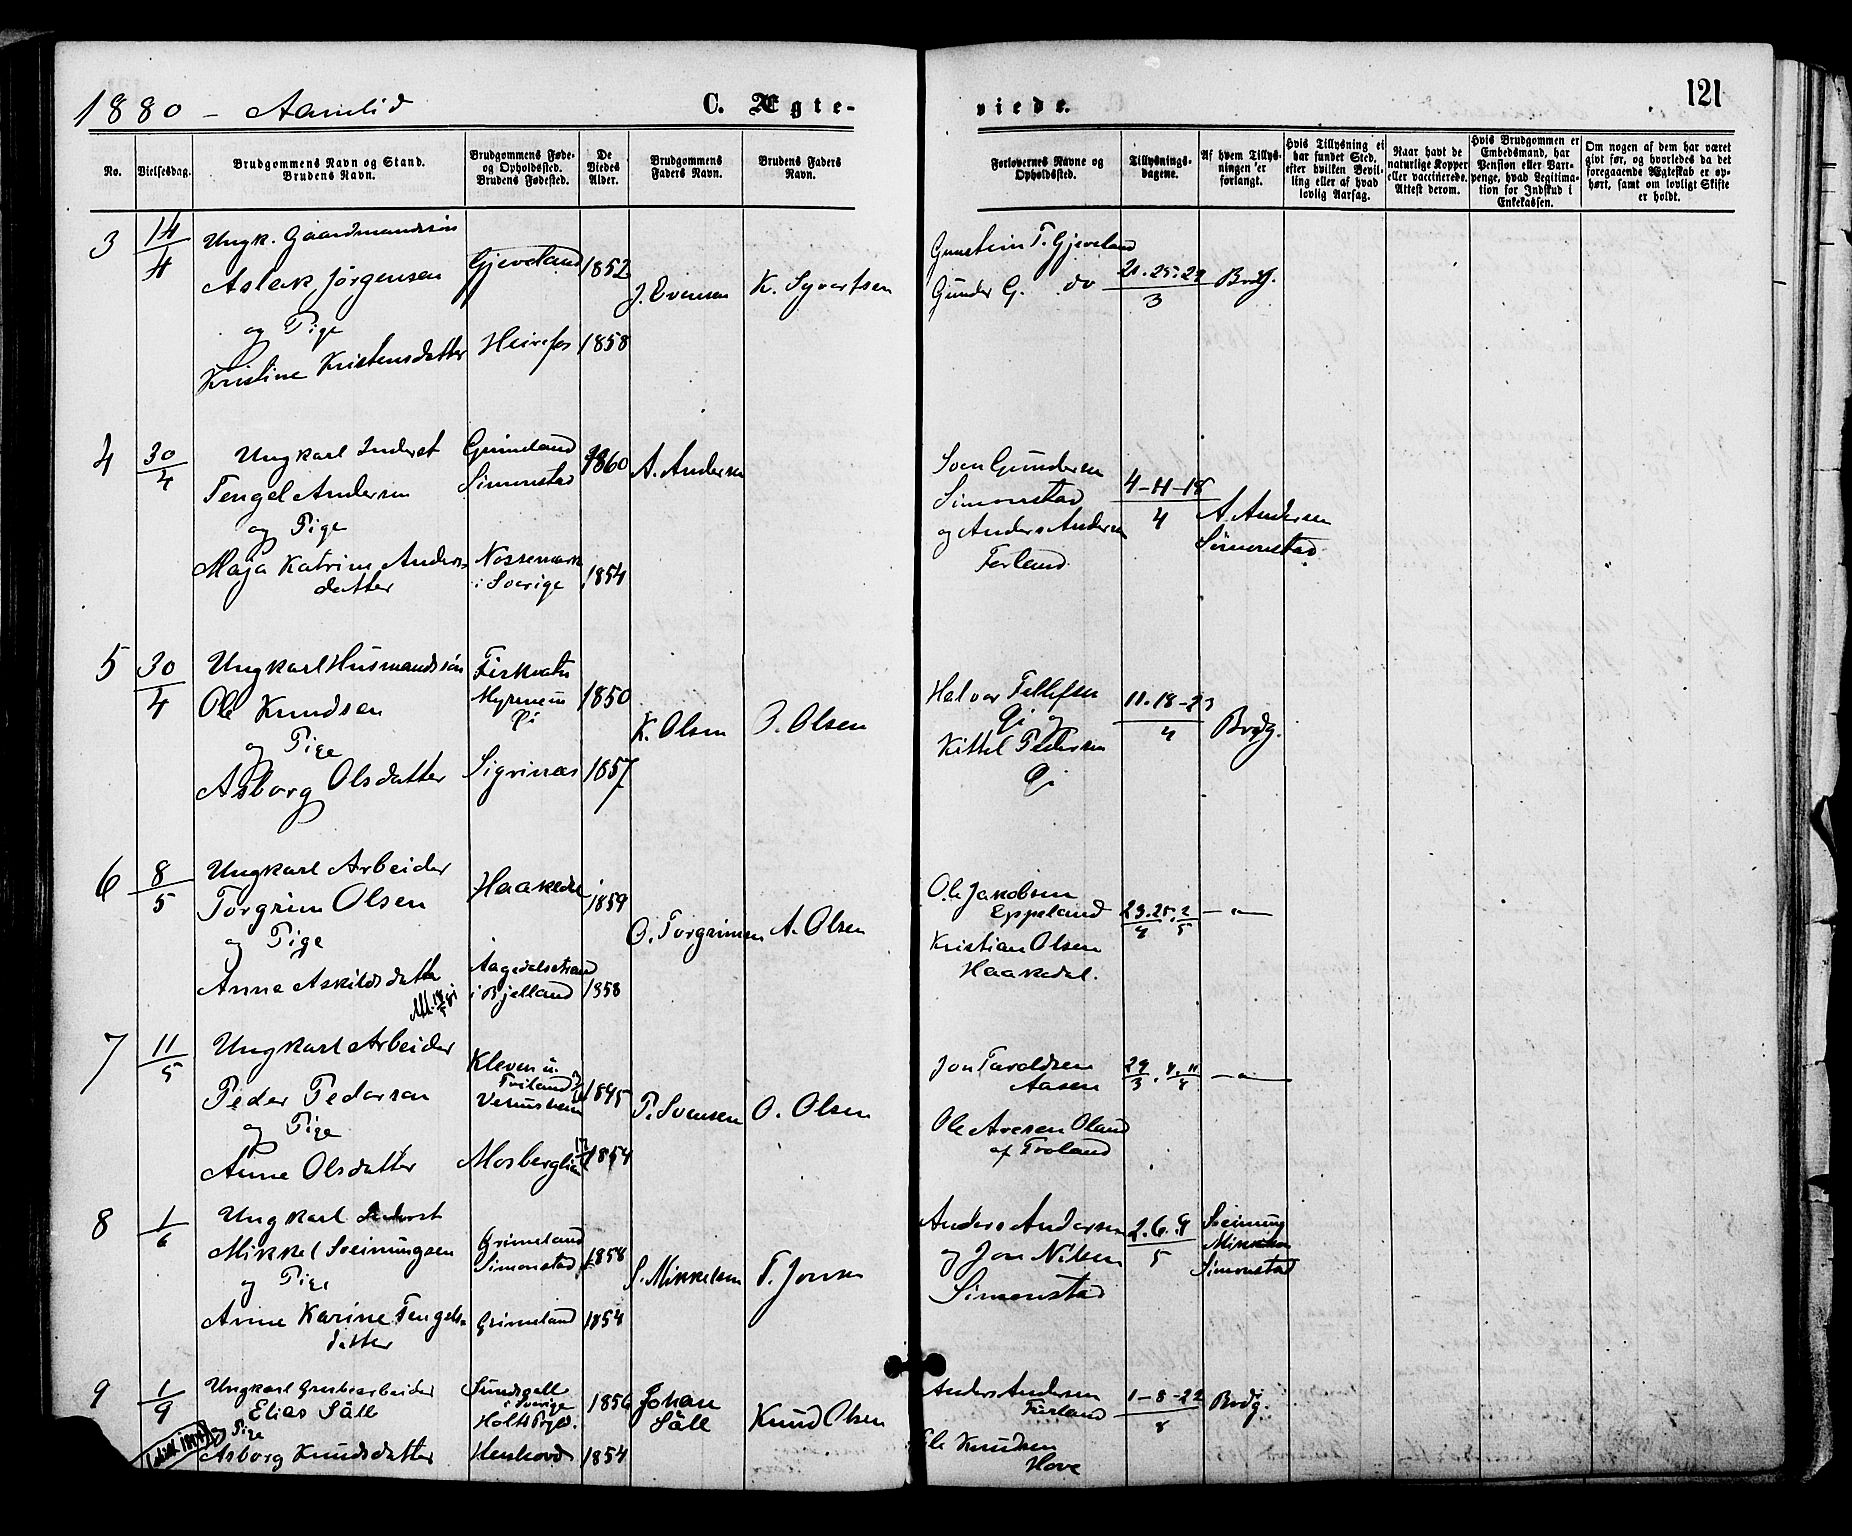 1880 - Aamlid
C. Ægte-
viede.
121
No.
Vielsesdag.
Brudgommens Navn og Stand.
Brudens Navn.
Brudgommens Føde-
og Opholdssted.
Brudens Fødested.
De
Viedes
Alder.
Brudgommens
Faders Navn.
Brudens Faders
Navn.
Forlovernes Navne og
Opholdssted.
Tillysnings-
dagene.
Af hvem Tillys-
ningen er
forlangt.
Hvis Tillysning ei
har fundet Sted,
efter hvilken Bevil-
ling eller af hvad
lovlig Aarsag.
Naar havt de
naturlige Kopper
eller vaccinerede.
Attest derom.
Hvis Brudgommen er
Embedsmand, har
Pension eller Vart-
penge, hvad Legitima-
tion for Indskud i
Enkekassen.
Om nogen af dem har været
gift før, og hvorledes da det
foregaaende Ægteskab er op-
hørt, samt om lovligt Skifte
er holdt.
3
14/4
Ungk. Gaardmandssøn
Aslak Jörgensen
og Pige
Kristine Kristensdatter
Gjeveland
Heirefos
1852
1858
J. Evensen
K. Syvertsen
Gunstein T. Gjeveland
Gunder G. do
21. 25. 29/3
Brdg.
4
30/4
Ungkarl Inderst
Tengel Andersen
og Pige
Maja Katrine Anders-
datter
Grimeland
Simonstad
Nossemark
i Sverige
1860
1854
A. Andersen
Sven Gundersen
Simonstad
og Anders Andersen
Førland
4-11-18/4
A. Andersen
Simonstad
5
30/4
Ungkarl Husmandssøn
Ole Knudsen
og Pige
Asborg Olsdatter
Fiskvatn
Myrene u.
Sigrinæs
1850
1857
K. Olsen
O. Olsen
Halvor Tellefsen
og
Kittel Pedersen
11. 18-23/4
Brdg.
6
8/5
Ungkarl Arbeider
Torgrim Olsen
og Pige
Anne Askildsdatter
Haakedal
Aagedalstrand
i Bjelland
1859
1858
O. Torgrimsen
A. Olsen
Ole Jakobsen
Eppeland
Kristian Olsen
Haakedal.
23. 25/4. 2/5
— " —
7
11/5
Ungkarl Arbeider
Peder Pedersen
og Pige
Anne Olsdatter
Kleven u.
Froland
Mosberglien
1845
1854
P. Svensen
O. Olsen
Jon Taraldsen
Aasen
Ole Aresen Oland
af Froland
29/3. 4. 11/4
— " —
8
1/6
Ungkarl Inderst
Mikkel Sveinungsen
og Pige
Anne Karine Tengels-
datter
Grimeland
Simonstad
Grimeland
1858
1854
S. Mikkelsen
T. Jonsen
Anders Andersen
og Jon Nilsen
Simonstad
2. 6. 9/5
Sveinung
Mikkelsen
Simonstad
9
1/9
Ungkarl Grubearbeider
Elias Säll
og Pige
Asborg Knudsdatter
Sundsgell
i Sverige
Henhovd
1856
1854
Johan
Säll
Knud Olsen
Anders Andersen
Førland
Ole Knudsen
Hove
1-8-22/8
Brdg.